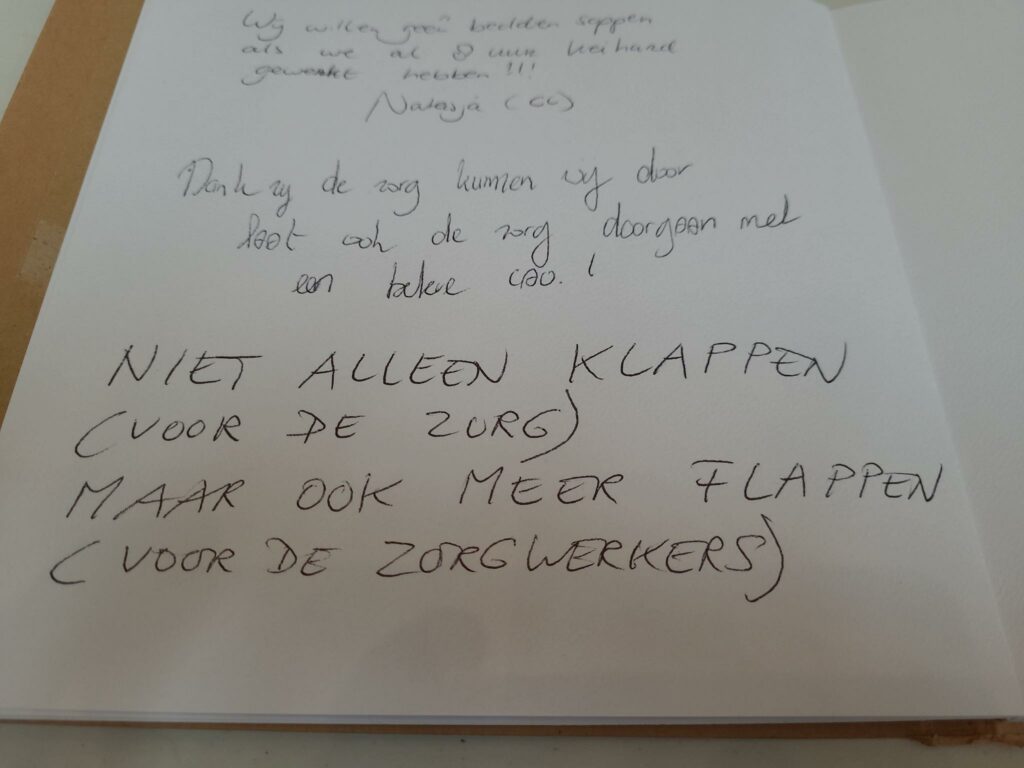 Wij willen geen bedden soppen
als we al 8 uur keihard
gewerkt hebben!!!
Natasja (CC)
Dank zij de zorg kunnen wij door
laat ook de zorg doorgaan met
een betere CAO.!
NIET ALLEEN KLAPPEN
(VOOR DE ZORG)
MAAR OOK MEER FLAPPEN
(VOOR DE ZORGWERKERS)